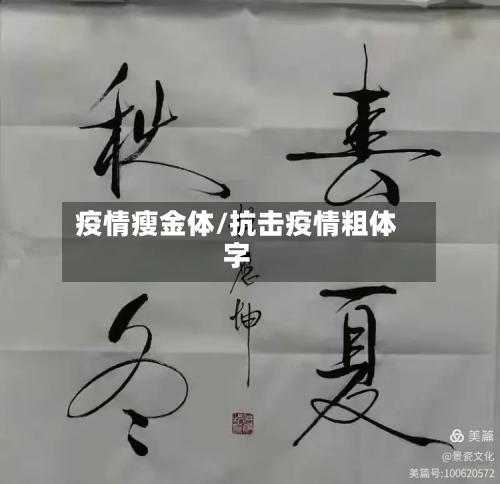 春
夏
秋
冬
疫情瘦金体/抗击疫情粗体
字
坤
美篇
@景瓷文化
美篇号:100620572